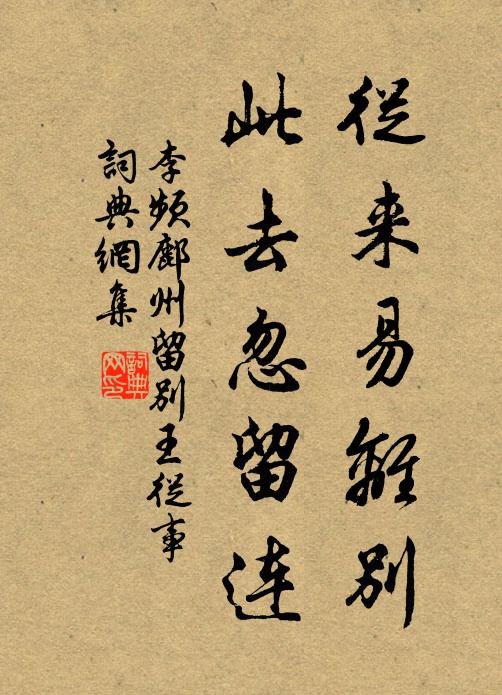 從来易離別
此去忽留連
李频鄜州留别王從事
詞典網集
詞典网印